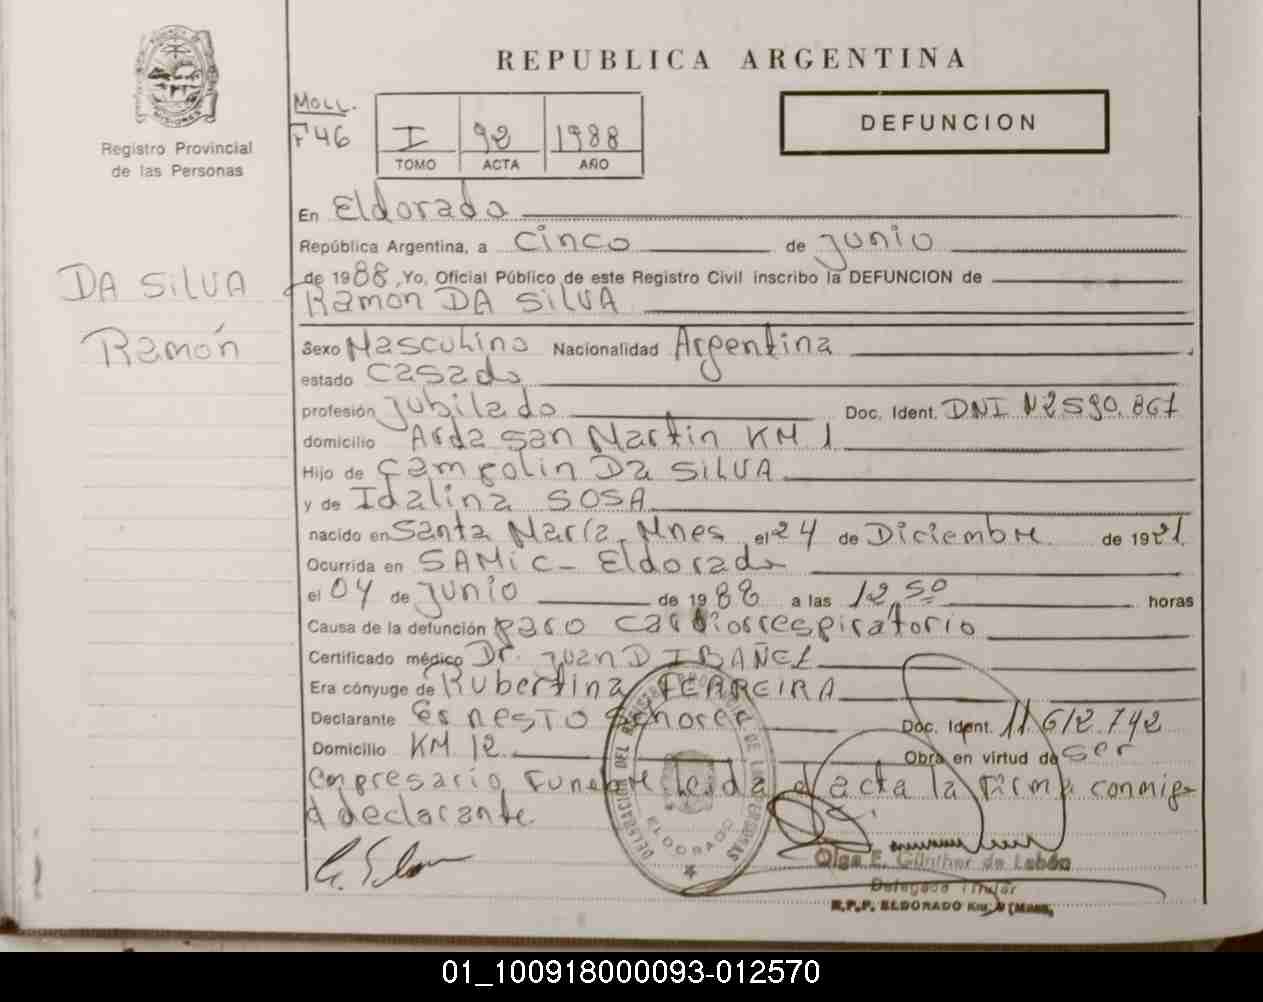 REPUBLICA ARGENTINA
MOLL.
F°46
I 92 1988
TOMO ACTA AÑO
DEFUNCION
Registro Provincial
de las Personas
En Eldorado
República Argentina, a cinco de junio
de 1988, Yo, Oficial Público de este Registro Civil inscribo la DEFUNCION de
Ramon DA SILVA
DA SILVA
Ramón
Sexo Masculino Nacionalidad Argentina
estado casado
profesión jubilado Doc. Ident. DNI N2590.867
domicilio Avda san Martin KM 1
Hijo de Da SILVA
y de Idalina SOSA
nacido en Santa María Mnes el 24 de Diciembre de 1921
Ocurrida en SAMic - Eldorado
el 04 de junio de 1988 a las 12,50 horas
Causa de la defunción paro cardiorrespiratorio
Certificado médico Dr. juan D IBAÑEZ
Era cónyuge de Rubertina FERREIRA
Declarante Ernesto Schorer Doc. Ident. 11.612.742
Domicilio KM 12 Obra en virtud de ser
Empresario Funebre Leida el acta la firma conmigo
el declarante.
DELEGACION DEL REGISTRO PROVINCIAL DE LAS PERSONAS
ELDORADO
Olga E. Günther de Lebón
Delegada Titular
R.P.P. ELDORADO Km.
01_100918000093-012570